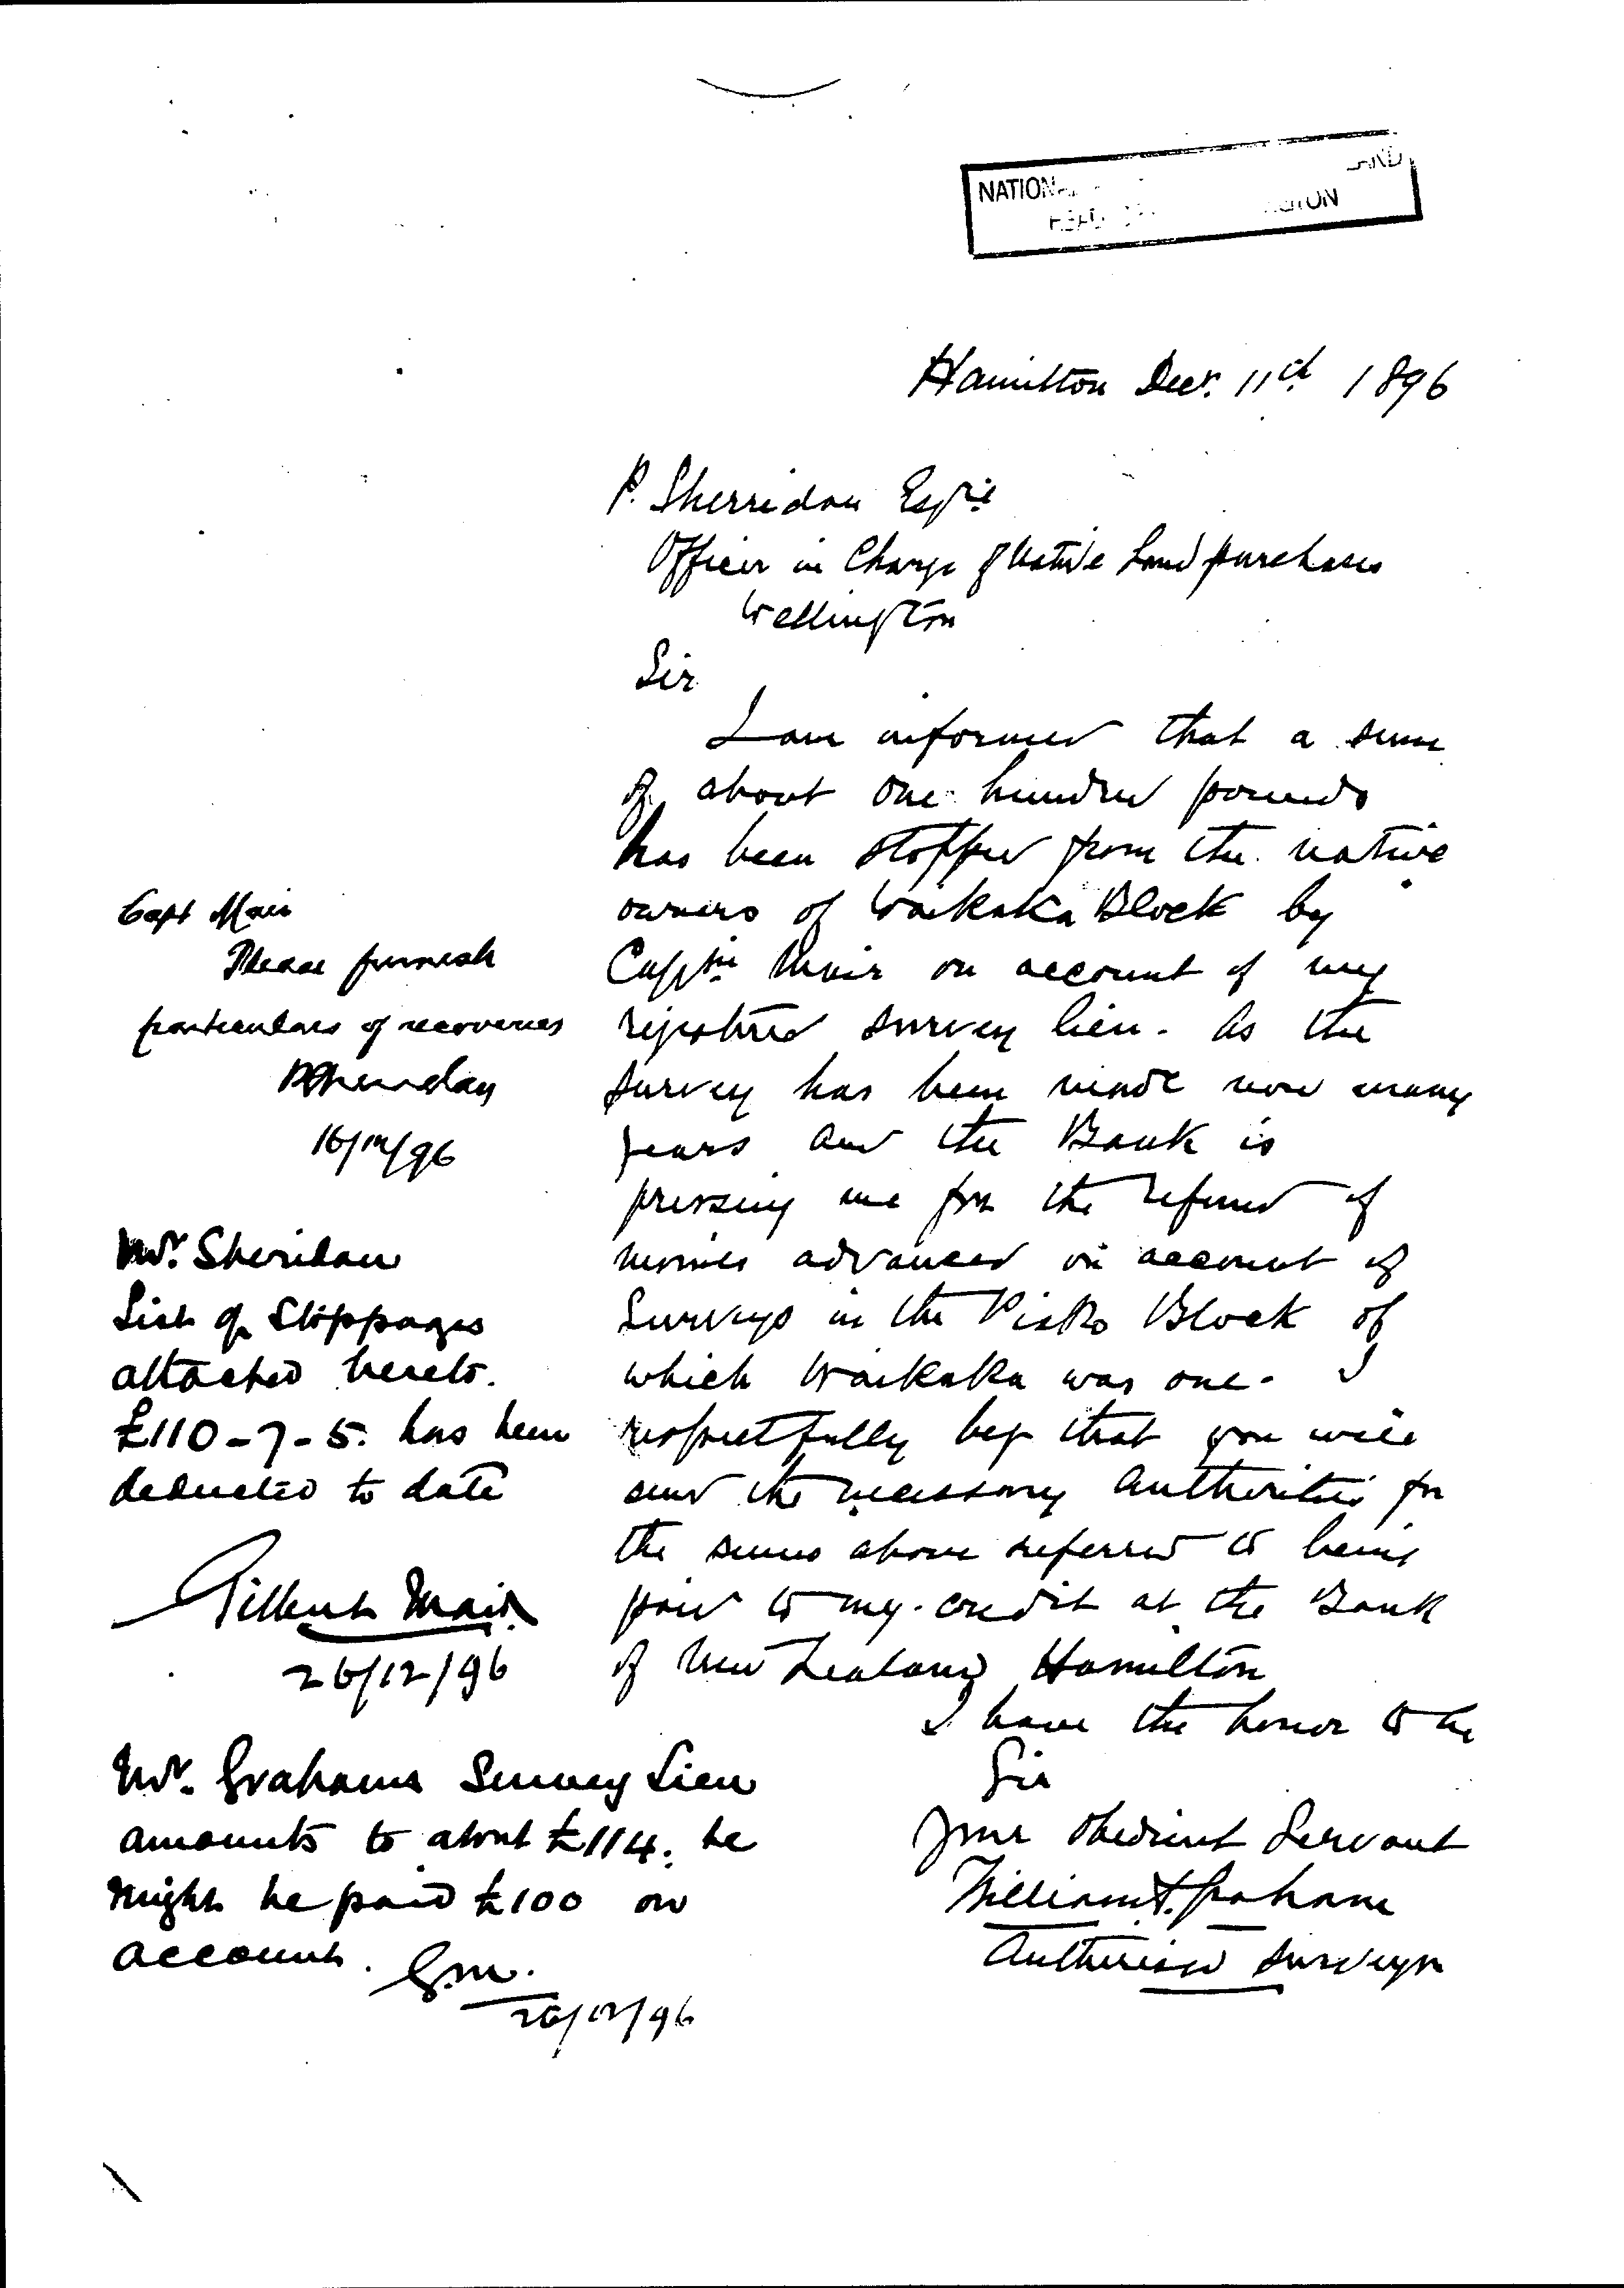 NATION
Hamilton Decr. 11th 1896
P. Sherridan Esqre
Officer in Charge of Native Land purchases
Wellington
Sir
I am informed that a sum
of about one hundred pounds
has been stopped from the native
owners of Waikaka Block by
Captn Mair on account of my
registered survey lien. As the
survey has been made now many
years and the Bank is
pressing me for the refund of
monies advanced on account of
Surveys in the Piako Block of
which Waikaka was one. I
respectfully beg that you will
send the necessary authorities for
the sums above referred to being
paid to my credit at the Bank
of New Zealand Hamilton
I have the honor to be
Sir
Your obedient Servant
William Graham
Authorised Surveyor
Capt Mair
Please furnish
particulars of recoveries
PSheridan
16/12/96
Mr. Sheridan
List of Stoppages
attached hereto.
£110-7-5. has been
deducted to date
Gilbert Mair
26/12/96
Mr. Grahams Survey Lien
amounts to about £114. he
might be paid £100 on
account. G.M.
26/12/96